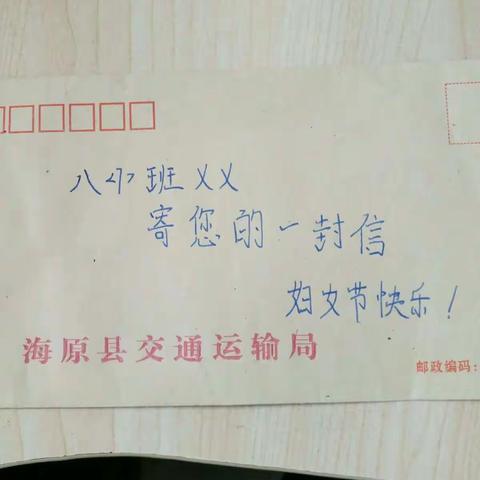 八<小>班乂乂
寄您的一封信
妇女节快乐！
海原县交通运输局
邮政编码：